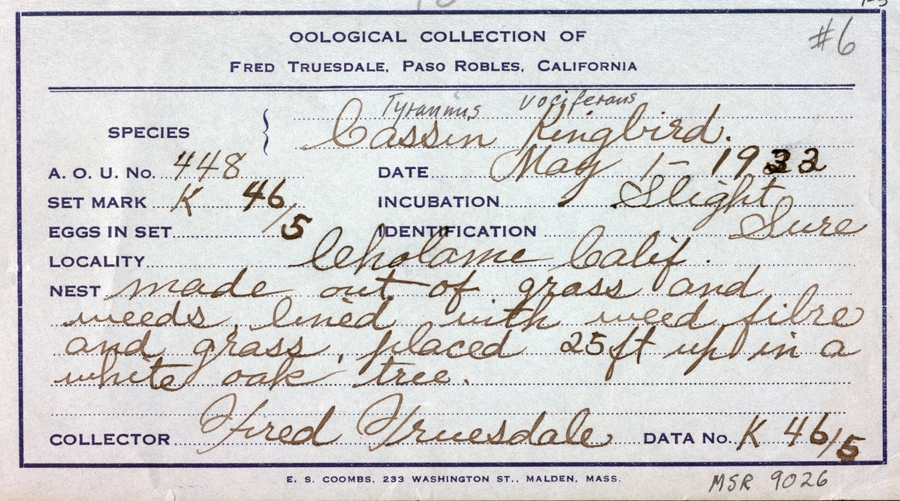 #6
OOLOGICAL COLLECTION OF
FRED TRUESDALE, PASO ROBLES, CALIFORNIA
Tyrannus vociferans
SPECIES Cassin Kingbird.
A. O. U. No. 448 DATE May 1 - 1933
SET MARK K 46/5 INCUBATION Slight
EGGS IN SET IDENTIFICATION Sure
LOCALITY Cholame Calif.
NEST made out of grass and
weeds, lined with weed fibre
and grass, placed 25 ft up in a
white oak tree.
COLLECTOR Fred Truesdale DATA No. K 46/5
E. S. COOMBS, 233 WASHINGTON ST., MALDEN, MASS.
MSR 9026